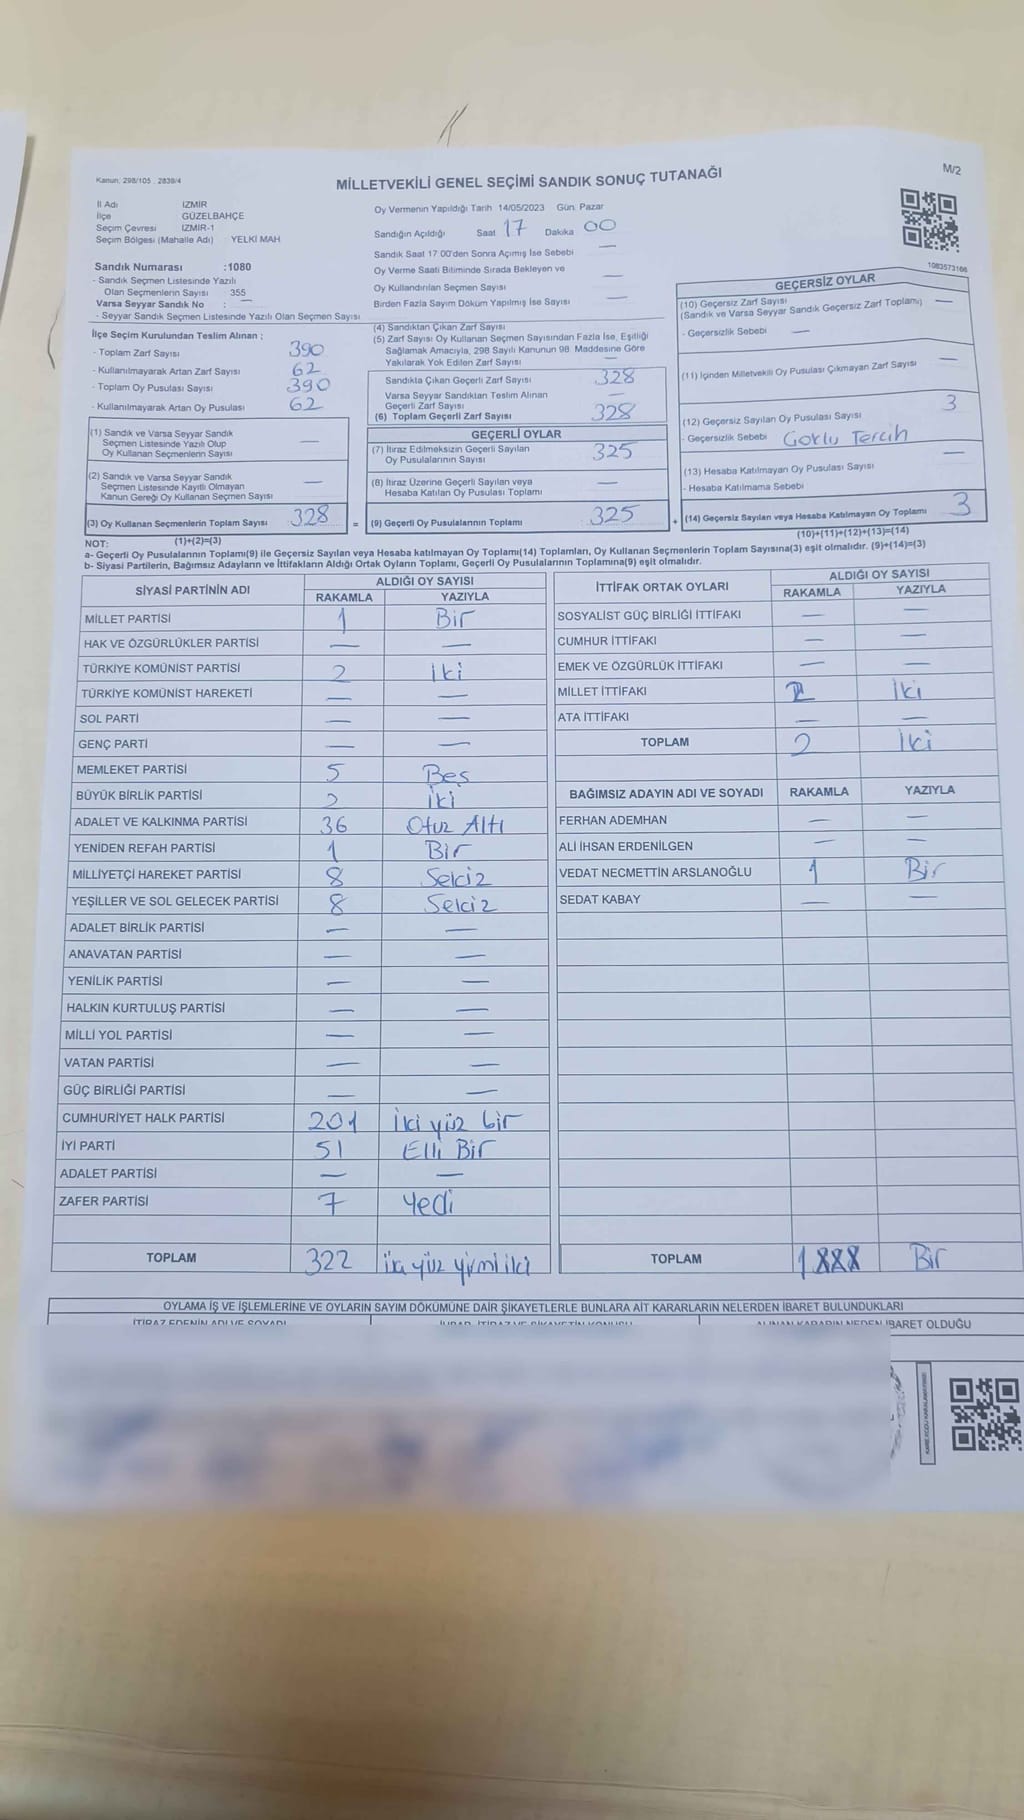 Kanun: 298/105 , 2839/4
MİLLETVEKİLİ GENEL SEÇİMİ SANDIK SONUÇ TUTANAĞI
M/2
İl Adı İZMİR
İlçe GÜZELBAHÇE
Seçim Çevresi İZMİR-1
Seçim Bölgesi (Mahalle Adı) YELKİ MAH
Oy Vermenin Yapıldığı Tarih 14/05/2023 Gün: Pazar
Sandığın Açıldığı Saat 17 Dakika 00
Sandık Saat 17:00'den Sonra Açımış İse Sebebi —
Oy Verme Saati Bitiminde Sırada Bekleyen ve
Oy Kullandırılan Seçmen Sayısı —
Birden Fazla Sayım Döküm Yapılmış İse Sayısı —
1083573166
Sandık Numarası :1080
- Sandık Seçmen Listesinde Yazılı
Olan Seçmenlerin Sayısı 355
Varsa Seyyar Sandık No : —
- Seyyar Sandık Seçmen Listesinde Yazılı Olan Seçmen Sayısı
İlçe Seçim Kurulundan Teslim Alınan ;
- Toplam Zarf Sayısı 390
- Kullanılmayarak Artan Zarf Sayısı 62
- Toplam Oy Pusulası Sayısı 390
- Kullanılmayarak Artan Oy Pusulası 62
(1) Sandık ve Varsa Seyyar Sandık
Seçmen Listesinde Yazılı Olup
Oy Kullanan Seçmenlerin Sayısı —
(2) Sandık ve Varsa Seyyar Sandık
Seçmen Listesinde Kayıtlı Olmayan
Kanun Gereği Oy Kullanan Seçmen Sayısı —
(3) Oy Kullanan Seçmenlerin Toplam Sayısı 328 =
(1)+(2)=(3)
(4) Sandıktan Çıkan Zarf Sayısı
(5) Zarf Sayısı Oy Kullanan Seçmen Sayısından Fazla İse, Eşitliği
Sağlamak Amacıyla, 298 Sayılı Kanunun 98. Maddesine Göre
Yakılarak Yok Edilen Zarf Sayısı —
Sandıkla Çıkan Geçerli Zarf Sayısı 328
Varsa Seyyar Sandıktan Teslim Alınan
Geçerli Zarf Sayısı —
(6) Toplam Geçerli Zarf Sayısı 328
GEÇERLİ OYLAR
(7) İtiraz Edilmeksizin Geçerli Sayılan
Oy Pusulalarının Sayısı 325
(8) İtiraz Üzerine Geçerli Sayılan veya
Hesaba Katılan Oy Pusulası Toplamı —
(9) Geçerli Oy Pusulalarının Toplamı 325 +
GEÇERSİZ OYLAR
(10) Geçersiz Zarf Sayısı
(Sandık ve Varsa Seyyar Sandık Geçersiz Zarf Toplamı) —
- Geçersizlik Sebebi —
(11) İçinden Milletvekili Oy Pusulası Çıkmayan Zarf Sayısı —
(12) Geçersiz Sayılan Oy Pusulası Sayısı 3
- Geçersizlik Sebebi Tercih
(13) Hesaba Katılmayan Oy Pusulası Sayısı —
- Hesaba Katılmama Sebebi
(14) Geçersiz Sayılan veya Hesaba Katılmayan Oy Toplamı 3
(10)+(11)+(12)+(13)=(14)
NOT:
a- Geçerli Oy Pusulalarının Toplamı(9) ile Geçersiz Sayılan veya Hesaba katılmayan Oy Toplamı(14) Toplamları, Oy Kullanan Seçmenlerin Toplam Sayısına(3) eşit olmalıdır. (9)+(14)=(3)
b- Siyasi Partilerin, Bağımsız Adayların ve İttifakların Aldığı Ortak Oyların Toplamı, Geçerli Oy Pusulalarının Toplamına(9) eşit olmalıdır.
SİYASİ PARTİNİN ADI ALDIĞI OY SAYISI
RAKAMLA YAZIYLA
MİLLET PARTİSİ 1 Bir
HAK VE ÖZGÜRLÜKLER PARTİSİ — —
TÜRKİYE KOMÜNİST PARTİSİ 2 İki
TÜRKİYE KOMÜNİST HAREKETİ — —
SOL PARTİ — —
GENÇ PARTİ — —
MEMLEKET PARTİSİ 5 Beş
BÜYÜK BİRLİK PARTİSİ 2 İki
ADALET VE KALKINMA PARTİSİ 36 Otuz Altı
YENİDEN REFAH PARTİSİ 1 Bir
MİLLİYETÇİ HAREKET PARTİSİ 8 Sekiz
YEŞİLLER VE SOL GELECEK PARTİSİ 8 Sekiz
ADALET BİRLİK PARTİSİ — —
ANAVATAN PARTİSİ — —
YENİLİK PARTİSİ — —
HALKIN KURTULUŞ PARTİSİ — —
MİLLİ YOL PARTİSİ — —
VATAN PARTİSİ — —
GÜÇ BİRLİĞİ PARTİSİ — —
CUMHURİYET HALK PARTİSİ 201 İki yüz bir
İYİ PARTİ 51 Elli Bir
ADALET PARTİSİ — —
ZAFER PARTİSİ 7 Yedi
TOPLAM 322 üç yüz yirmi iki
İTTİFAK ORTAK OYLARI ALDIĞI OY SAYISI
RAKAMLA YAZIYLA
SOSYALİST GÜÇ BİRLİĞİ İTTİFAKI — —
CUMHUR İTTİFAKI — —
EMEK VE ÖZGÜRLÜK İTTİFAKI — —
MİLLET İTTİFAKI 2 İki
ATA İTTİFAKI — —
TOPLAM 2 İki
BAĞIMSIZ ADAYIN ADI VE SOYADI RAKAMLA YAZIYLA
FERHAN ADEMHAN — —
ALİ İHSAN ERDENİLGEN — —
VEDAT NECMETTİN ARSLANOĞLU 1 Bir
SEDAT KABAY — —
TOPLAM 1 Bir
OYLAMA İŞ VE İŞLEMLERİNE VE OYLARIN SAYIM DÖKÜMÜNE DAİR ŞİKAYETLERLE BUNLARA AİT KARARLARIN NELERDEN İBARET BULUNDUKLARI
İTİRAZ EDENİN ADI VE SOYADI
ALINAN KARARIN NEDEN İBARET OLDUĞU